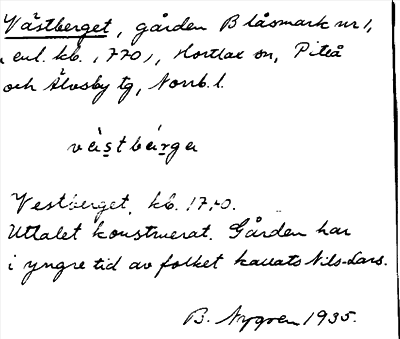 Västberget, gården Blåsmark nr 1,
enl. kb. 1770, Hortlax sn, Piteå
och Älvsby tg, Norrb. l.
väs̱tbäṟga
Vestberget, kb. 1770.
Uttalet konstruerat. Gården har
i yngre tid av folket kallats Nils-Lars.
B. Nygren 1935.